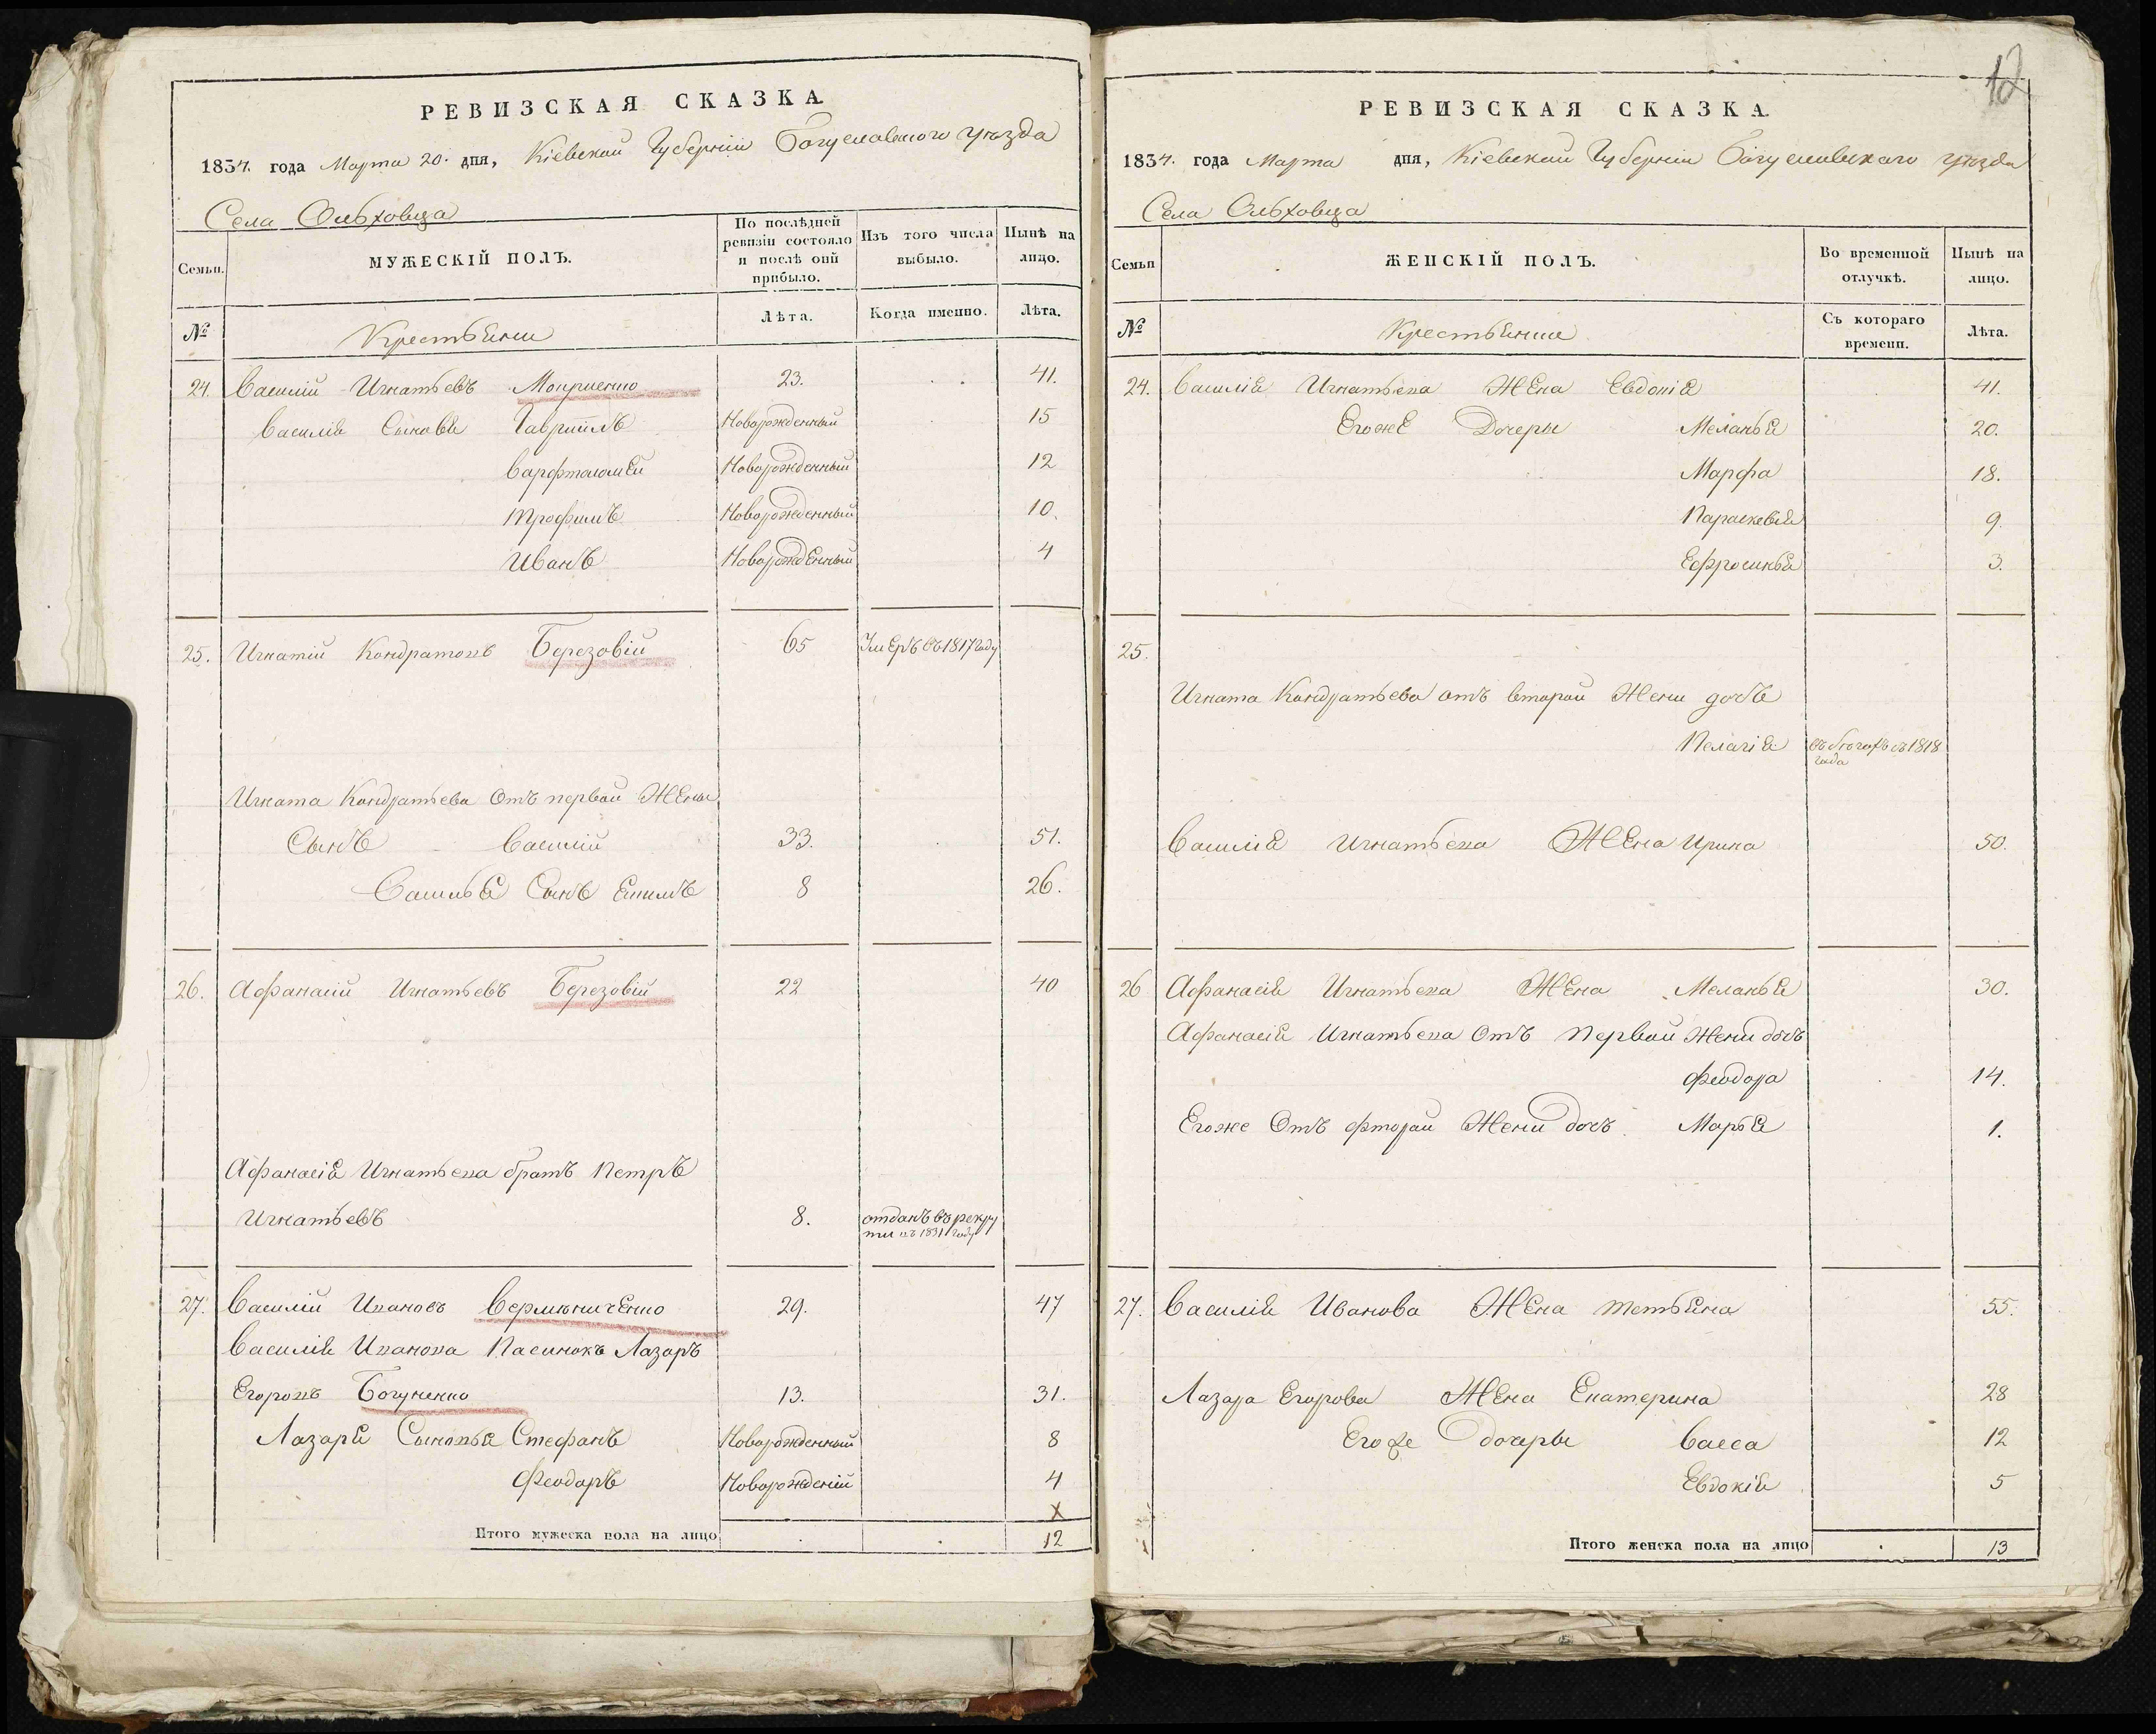 РЕВИЗСКАЯ СКАЗКА
1834. года Марта 20. дня, Кіевской Губерніи Богуславского уѣзда
Села Ольховца
Семьи.
МУЖЕСКІЙ ПОЛЪ.
По послѣдней ревизіи состояло и послѣ оной прибыло.
Изъ того числа выбыло.
Нынѣ на лицо.
№
Крестьяни
Лѣта.
Когда именно.
Лѣта.
24. Василій Игнатьевъ 23. 41.
Василія Сыновья Гавріилъ Новорожденный 15
Варфтоломей Новорожденный 12
Трофимъ Новорожденный 10.
Иванъ Новорожденный 4
25. Игнатій Кондратовъ Березовій 65 Умеръ въ 1817 году
Игната Кондратьева Отъ первой Жены
Сынъ Василій 33. 51.
Василья Сынъ Екимъ 8 26.
26. Афанасій Игнатьевъ Березовій 22 40
Афанасія Игнатьева братъ Петръ
Игнатьевъ 8. отданъ въ рекру
ти въ 1831 году
27. Василій Ивановъ 29. 47
Василія Иванова Пасинокъ Лазаръ
Егоровъ Богуненко 13. 31.
Лазаря Сыновья Стефанъ Новорожденный 8
Феодоръ Новорожденій 4
х
Итого мужеска пола на лицо . . 12
12
РЕВИЗСКАЯ СКАЗКА
1834. года Марта дня, Кіевской Губерніи Богуславского уѣзда
Села Ольховца
Семьи
ЖЕНСКІЙ ПОЛЪ.
Во временной отлучкѣ.
Нынѣ на лицо.
№
Крестьянии
Съ котораго времени.
Лѣта.
24. Василія Игнатьева Жена Евдокія 41.
Егоже Дочеры Меланья 20.
Марфа 18.
Параскевія 9.
Ефросинья 3.
25.
Игната Кондратьева отъ второй Жени дочь
Пелагія въ бѣгахъ съ 1818
года
Василія Игнатьева Жена Ирина 50.
26 Афанасія Игнатьева Жена Меланья 30.
Афанасія Игнатьева Отъ Первой Жени дочъ
Феодора 14.
Егоже Отъ фторой Жени дочъ Марья 1.
27. Василія Иванова Жена Тетьяна 55.
Лазара Егорова Жена Екатерина 28
Егоже дочеры Васса 12
Евдокія 5
Итого женска пола на лицо . 13